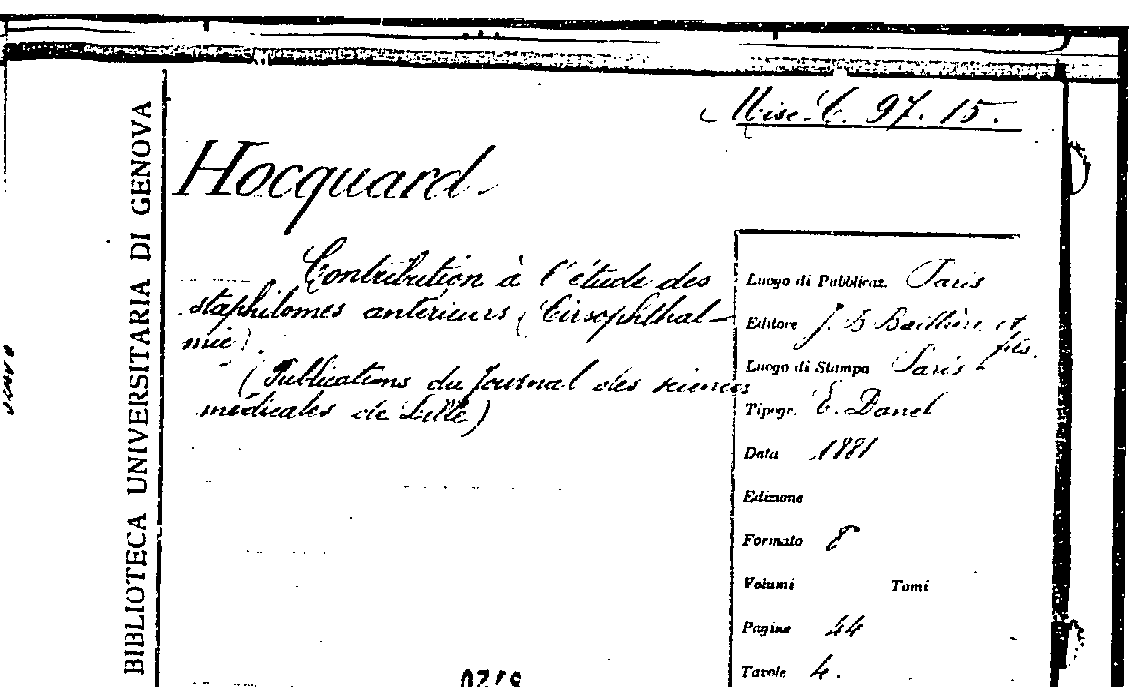 Misc. C. 97. 15.
BIBLIOTECA UNIVERSITARIA DI GENOVA
Hocquard
Contribution à l'étude des
staphilomes antérieurs (Cirsophthal-
mie)
(Publications du Journal des sciences
médicales de Lille)
Luogo di Pubblicaz. Paris
Editore J. B Baillière et
fils.
Luogo di Stampa Paris
Tipogr. E. Danel
Data 1881
Edizione
Formato 8
Volumi Tomi
Pagine 44
Tavole 4.